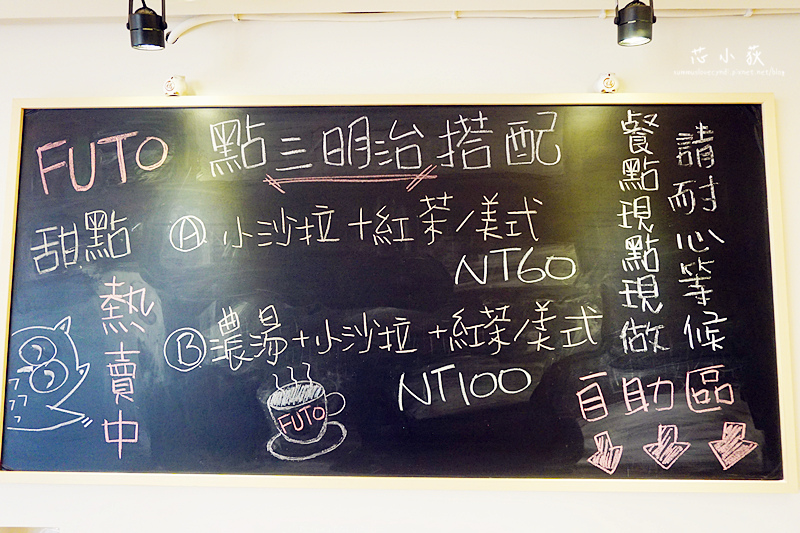 芯小荻
FUTO
點三明治搭配
甜點
熱賣中
Ⓐ 小沙拉+紅茶/美式
NT60
Ⓑ 濃湯+小沙拉+紅茶/美式
NT100
FUTO
請耐心等候
餐點現點現做
自助區